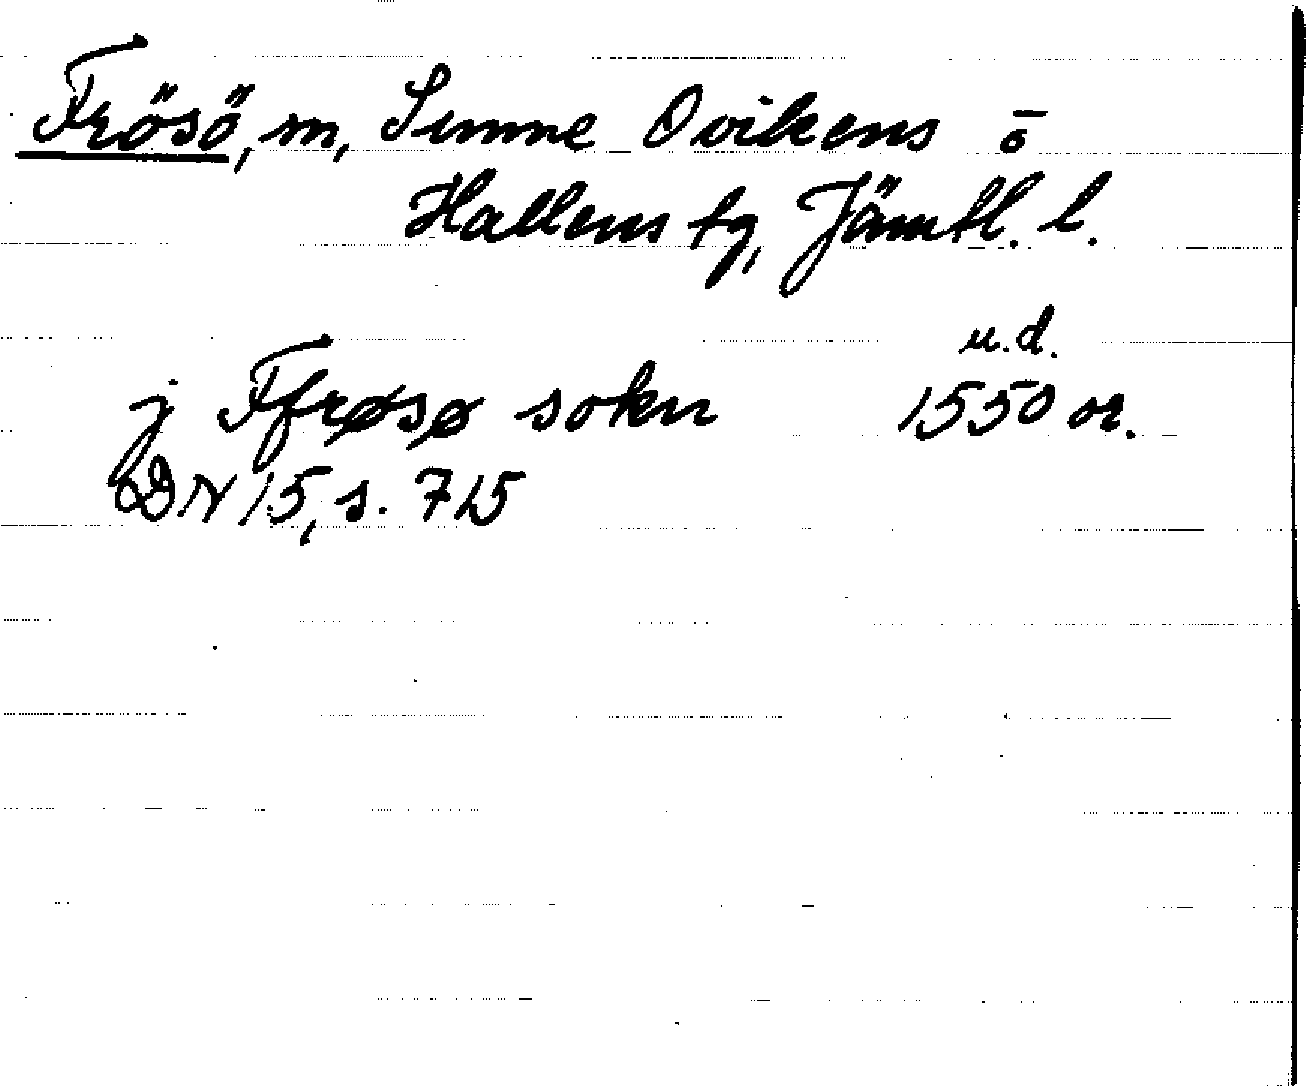 Frösö, sn, Sunne Ovikens o
Hallens tg, Jämtl. l.
u.d.
j Ffrøsø sokn 1550 or.
DN 15, s. 715